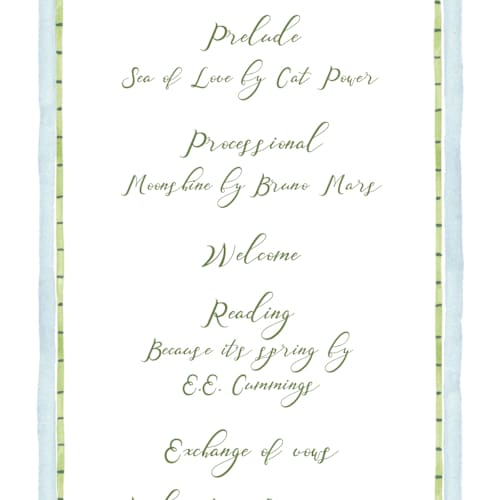 Prelude
Sea of Love by Cat Power
Processional
Moonshine by Bruno Mars
Welcome
Reading
Because it's spring by
E.E. Cummings
Exchange of vows